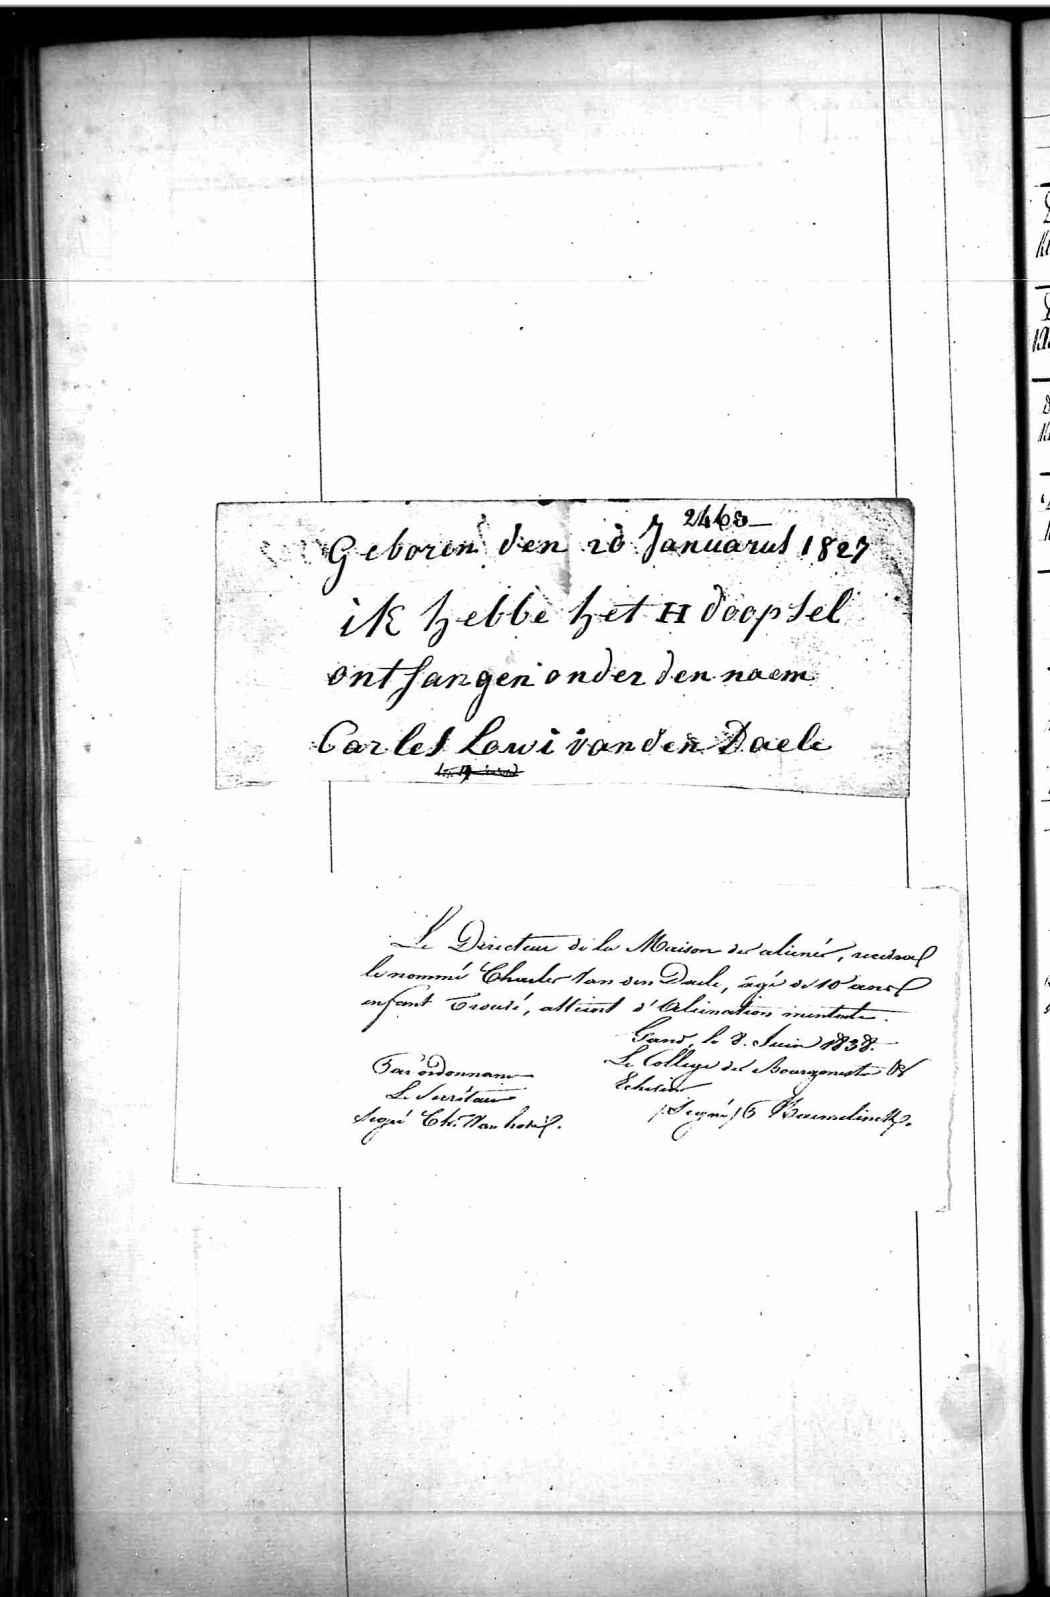 2463
Geboren den 20 Januarus 1827
ik hebbe het H doopsel
ontfangen onder den naem
Carles Lowi van den Daele
Le Directeur de la Maison des aliénés, recevra
le nommé Charles Van den Daele, âgé de 10 ans
enfant Trouvé, atteint d'Aliénation mentale.
Gand, le 8. Juin 1838.
Par ordonnance
Le Collège des Bourgmestre &
Le Secrétaire
Echevins
Signé Ch:
(Signé)